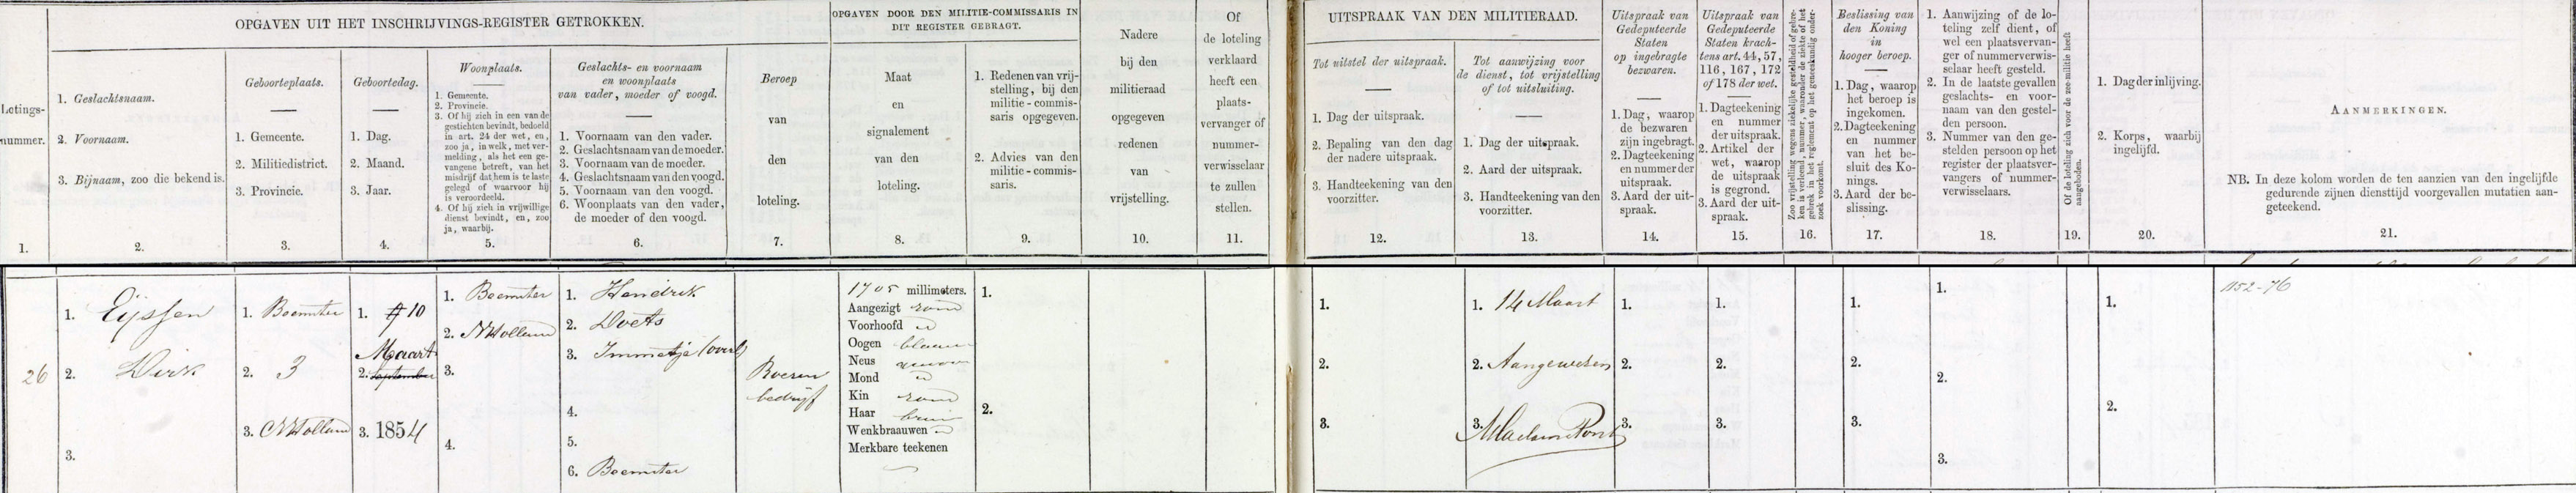 OPGAVEN UIT HET INSCHRIJVINGS-REGISTER GETROKKEN.
Lotings-
nummer.
1.
1. Geslachtsnaam.
2. Voornaam.
3. Bijnaam, zoo die bekend is.
2.
Geboorteplaats.
1. Gemeente.
2. Militiedistrict.
3. Provincie.
3.
Geboortedag.
1. Dag.
2. Maand.
3. Jaar.
4.
Woonplaats.
1. Gemeente.
2. Provincie.
3. Of hij zich in een van de
gestichten bevindt, bedoeld
in art. 24 der wet, en,
zoo ja, in welk, met ver-
melding, als het een ge-
vangene betreft, van het
misdrijf dat hem is te laste
gelegd of waarvoor hij
is veroordeeld.
4. Of hij zich in vrijwillige
dienst bevindt, en, zoo
ja, waarbij.
5.
Geslachts- en voornaam
en woonplaats
van vader, moeder of voogd.
1. Voornaam van den vader.
2. Geslachtsnaam van de moeder.
3. Voornaam van de moeder.
4. Geslachtsnaam van den voogd.
5. Voornaam van den voogd.
6. Woonplaats van den vader,
de moeder of den voogd.
6.
Beroep
van
den
loteling.
7.
OPGAVEN DOOR DEN MILITIE-COMMISSARIS IN
DIT REGISTER GEBRAGT.
Maat
en
signalement
van den
loteling.
8.
1. Redenen van vrij-
stelling, bij den
militie-commis-
saris opgegeven.
2. Advies van den
militie-commis-
saris.
9.
Nadere
bij den
militieraad
opgegeven
redenen
van
vrijstelling.
10.
Of
de loteling
verklaard
heeft een
plaats-
vervanger of
nummer-
verwisselaar
te zullen
stellen.
11.
UITSPRAAK VAN DEN MILITIERAAD.
Tot uitstel der uitspraak.
1. Dag der uitspraak.
2. Bepaling van den dag
der nadere uitspraak.
3. Handteekening van den
voorzitter.
12.
Tot aanwijzing voor
de dienst, tot vrijstelling
of tot uitsluiting.
1. Dag der uitspraak.
2. Aard der uitspraak.
3. Handteekening van den
voorzitter.
13.
Uitspraak van
Gedeputeerde
Staten
op ingebragte
bezwaren.
1. Dag, waarop
de bezwaren
zijn ingebragt.
2. Dagteekening
en nummer der
uitspraak.
3. Aard der uit-
spraak.
14.
Uitspraak van
Gedeputeerde
Staten krach-
tens art. 44, 57,
116, 167, 172
of 178 der wet.
1. Dagteekening
en nummer
der uitspraak.
2. Artikel der
wet, waarop
de uitspraak
is gegrond.
3. Aard der uit-
spraak.
15.
Zoo vrijstelling wegens ziekelijke gesteldheid of gebre-
ken is verleend, nummer, waaronder de ziekte of het
gebrek in het reglement op het geneeskundig onder-
zoek voorkomt.
16.
Beslissing van
den Koning
in
hooger beroep.
1. Dag, waarop
het beroep is
ingekomen.
2. Dagteekening
en nummer
van het be-
sluit des Ko-
nings.
3. Aard der be-
slissing.
17.
1. Aanwijzing of de lo-
teling zelf dient, of
wel een plaatsvervan-
ger of nummerverwis-
selaar heeft gesteld.
2. In de laatste gevallen
geslachts- en voor-
naam van den gestel-
den persoon.
3. Nummer van den ge-
stelden persoon op het
register der plaatsver-
vangers of nummer-
verwisselaars.
18.
Of de loteling zich voor de zee-militie heeft
aangeboden.
19.
1. Dag der inlijving.
2. Korps, waarbij
ingelijfd.
20.
AANMERKINGEN.
NB. In deze kolom worden de ten aanzien van den ingelijfde
gedurende zijnen diensttijd voorgevallen mutatien aan-
geteekend.
21.
26
1. Eijssen
2. Dirk
3.
1. Beemster
2. 3
3. NHolland
1. 10
Maart
2. September
3. 1854
1. Beemster
2. NHolland
3.
4.
1. Hendrik
2. Doets
3. Immetje (overl)
4.
5.
6. Beemster
Boeren
bedrijf
1705 millimeters.
Aangezigt rond
Voorhoofd
Oogen blauw
Neus
Mond
Kin rond
Haar bruin
Wenkbraauwen
Merkbare teekenen
1.
2.
1.
2.
3.
1. 14 Maart
2. Aangewezen
3.
1.
2.
3.
1.
2.
3.
1.
2.
3.
1.
2.
3.
1.
2.
152-76